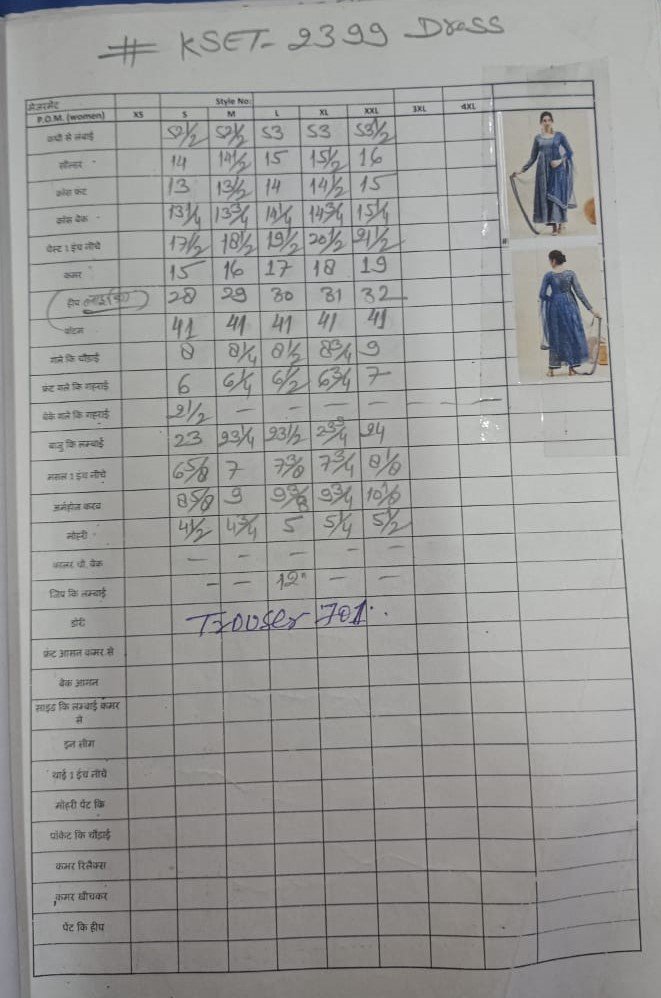 # KSET- 2399 Dress
मेजरमेंट Style No:
P.O.M. (women) XS S M L XL XXL 3XL 4XL
कधी से लंबाई 52 1/2 52 1/2 53 53 53 1/2
सोल्डर 14 14 1/2 15 15 1/2 16
क्रोस फ्रंट 13 13 1/2 14 14 1/2 15
क्रोस बेक 13 1/4 13 3/4 14 1/4 14 3/4 15 1/4
चेस्ट 1 इंच नीचे 17 1/2 18 1/2 19 1/2 20 1/2 21 1/2
कमर 15 16 17 18 19
हीप 28 29 30 31 32
बॉटम 41 41 41 41 41
गले कि चौड़ाई 8 8 1/4 8 1/2 8 3/4 9
फ्रंट गले कि गहराई 6 6 1/4 6 1/2 6 3/4 7
बेक गले कि गहराई 2 1/2 — — — —
बाजु कि लम्बाई 23 23 1/4 23 1/2 23 3/4 24
मसल 1 इंच नीचे 6 5/8 7 7 3/8 7 3/4 8 1/8
आर्महोल करव 8 5/8 9 9 3/8 9 3/4 10 1/8
मोहरी 4 1/2 4 3/4 5 5 1/4 5 1/2
कालर बेक — — — — —
जिप कि लम्बाई — — 12" — —
डोरी Trouser 701.
फ्रंट आसन कमर से
बेक आसन
साइड कि लम्बाई कमर
से
इन सीम
थाई 1 इंच नीचे
मोहरी पेंट कि
पॉकेट कि चौड़ाई
कमर रिलैक्स
कमर खीचकर
पेंट कि हीप